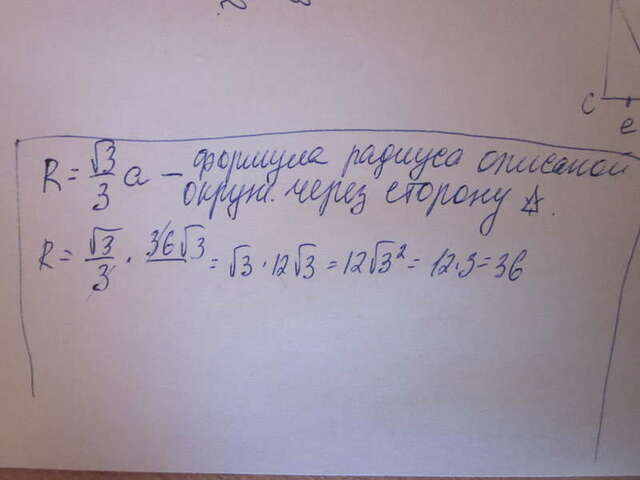 R = √3/3 a – формула радиуса описаной
окруж. через сторону △.
R = √3/3 · 36√3 = √3 · 12√3 = 12√3² = 12·3 = 36
c
e